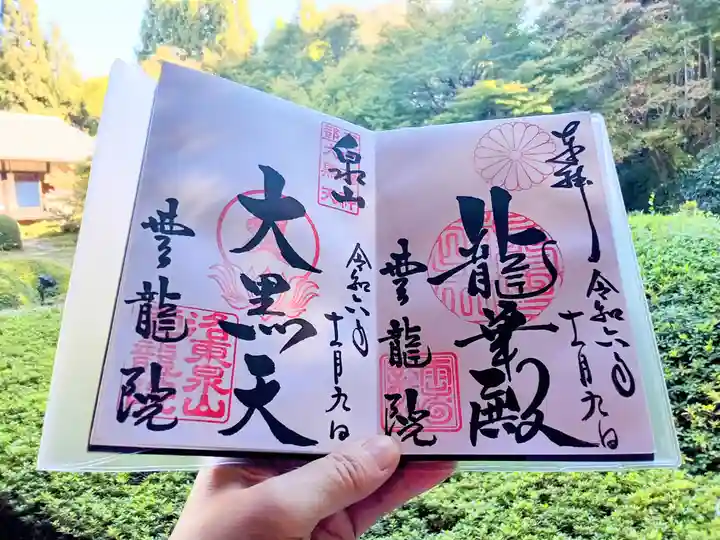 奉拝
令和六年
十一月九日
龍華殿
雲龍院
泉山
令和六年
十一月九日
大黒天
雲龍院
洛東泉山